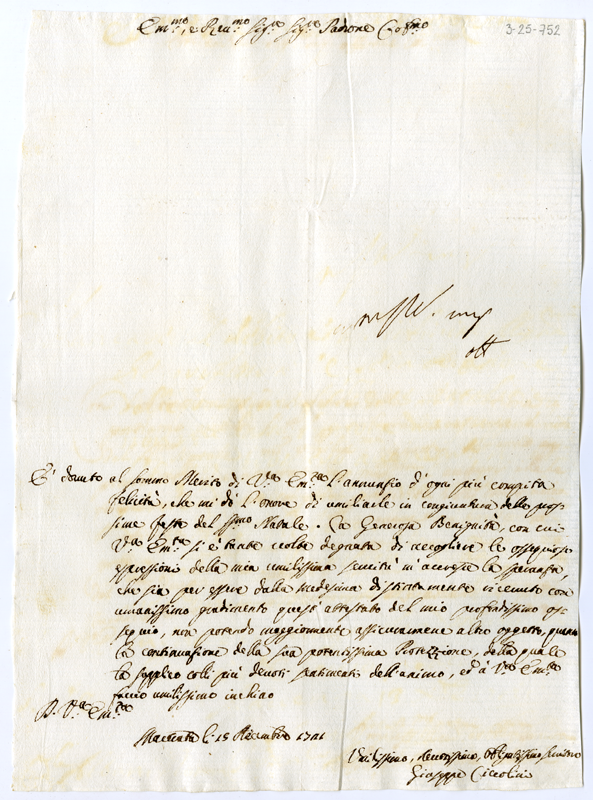 Em.mo, e Reu.mo Sig.re Sig.re Padrone Col.mo
3-25-752
È douuto al sommo Merito di V.ra Em.za l'annunzio d'ogni più compita
felicità, che mi dò l'onore di umiliarle in congiuntura delle pros-
sime feste del SSmo Natale. La Generosa Benignità, con cui
V.ra Em.za si è tante volte degnata di accogliere le ossequiose
espressioni della mia umilissima seruitù m'accresce la speranza,
che sia per essere dalla medesima distintamente riceuuto con
umanissimo gradimento quest'attestato del mio profondissimo os-
sequio, non potendo maggiormente assicurarmene altro oggetto, quanto
la continuazione della sua potentissima Protezzione, della quale
la supplico colli più deuoti sentimenti dell'animo, ed à V.ra Em.za
faccio umilissimo inchino
D. V.ra Em.za
Macerata li 15 Decembre 1721
Umilissimo, deuotissimo, obligatissimo seruitore
Giuseppe Ciccolini